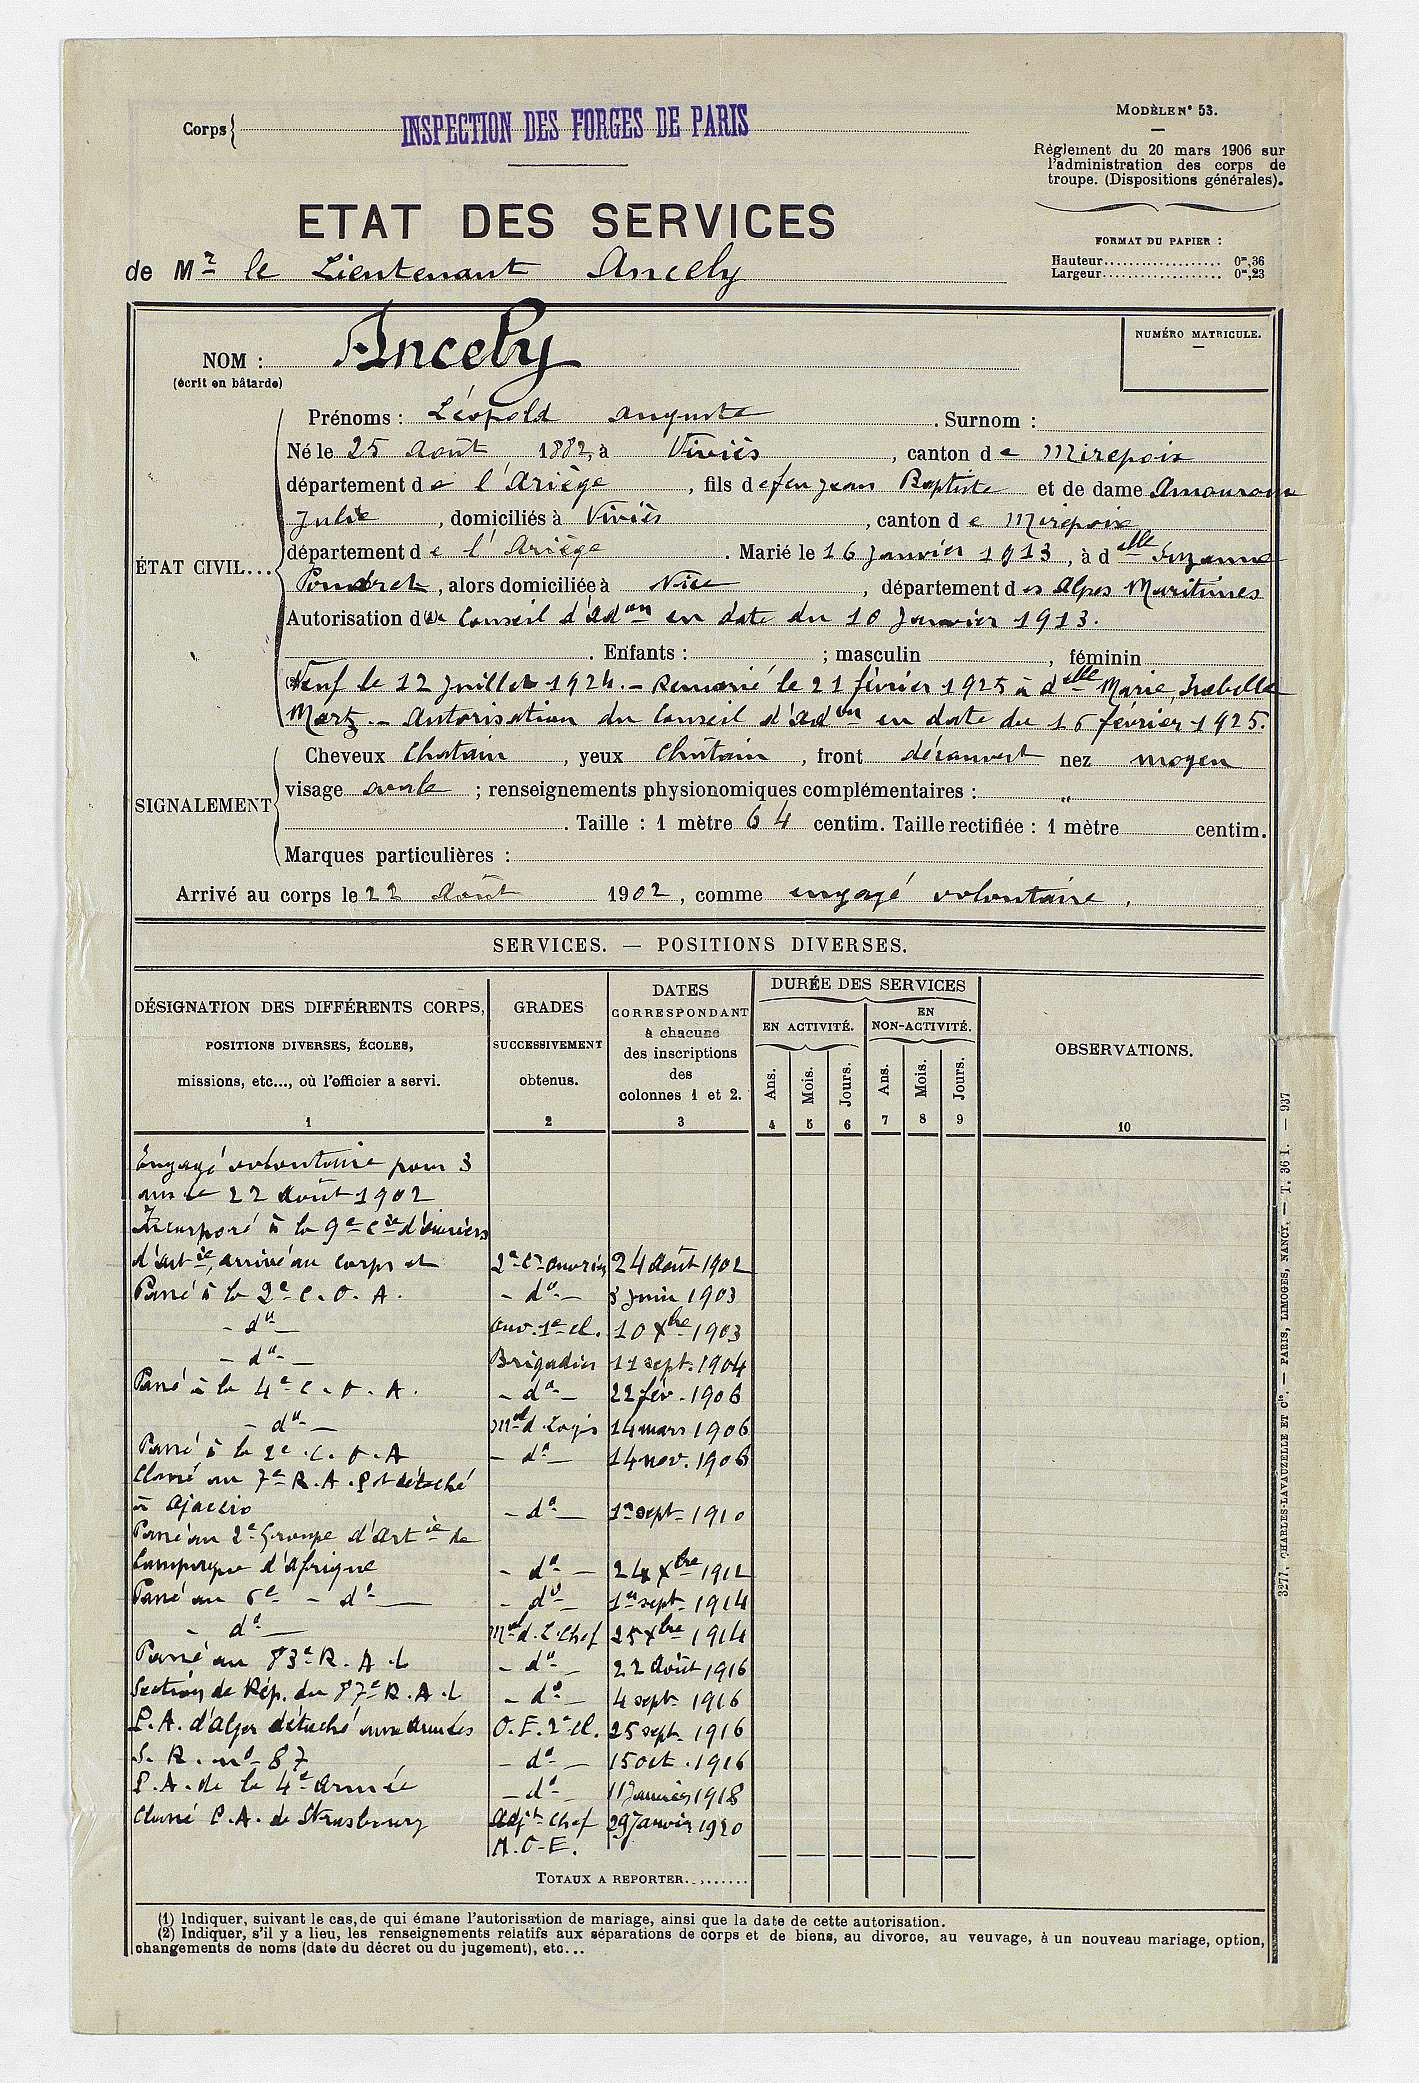 Corps { INSPECTION DES FORGES DE PARIS
MODÈLE N° 53.
Règlement du 20 mars 1906 sur
l'administration des corps de
troupe. (Dispositions générales).
FORMAT DU PAPIER :
Hauteur................... 0m,36
Largeur................... 0m,23
ETAT DES SERVICES
de Mr le Lieutenant Ancely
NUMÉRO MATRICULE.
NOM : Ancely
(écrit en bâtarde)
ÉTAT CIVIL...
Prénoms : Léopold Auguste . Surnom :
Né le 25 Août 1882, à Viviès , canton de Mirepoix
département de l'Ariège , fils de feu Jean Baptiste et de dame
Julie , domiciliés à Viviès , canton de Mirepoix
département de l'Ariège . Marié le 16 Janvier 1913 , à delle Suzanne
, alors domiciliée à Nice , département des Alpes Maritimes
Autorisation du Conseil d'Adon en date du 10 Janvier 1913.
. Enfants : ; masculin , féminin
Veuf le 12 Juillet 1924. - Remarié le 21 février 1925 à delle Marie, Isabelle
Martz. - Autorisation du Conseil d'Adon en date du 16 février 1925.
SIGNALEMENT
Cheveux Chatain , yeux Chatain , front découvert nez moyen
visage ovale ; renseignements physionomiques complémentaires : "
. Taille : 1 mètre 64 centim. Taille rectifiée : 1 mètre centim.
Marques particulières :
Arrivé au corps le 22 Août 1902 , comme engagé volontaire .
SERVICES. — POSITIONS DIVERSES.
DÉSIGNATION DES DIFFÉRENTS CORPS,
POSITIONS DIVERSES, ÉCOLES,
missions, etc..., où l'officier a servi.
1
GRADES
SUCCESSIVEMENT
obtenus.
2
DATES
CORRESPONDANT
à chacune
des inscriptions
des
colonnes 1 et 2.
3
DURÉE DES SERVICES
EN ACTIVITÉ.
EN NON-ACTIVITÉ.
Ans. Mois. Jours. Ans. Mois. Jours.
4 5 6 7 8 9
OBSERVATIONS.
10
Engagé volontaire pour 3
ans le 22 Août 1902
Incorporé à la 9e Cie d'ouvriers
d'artie, arrivé au corps et 2e Cl ouvrier 24 Août 1902
Passé à la 2e C.O.A. - do - 3 Juin 1903
- do - Ouv. 1e cl. 10 Xbre 1903
- do - Brigadier 11 sept. 1904
Passé à la 4e C.O.A. - do - 22 fév. 1906
- do - Mal d. Logis 14 mars 1906
Passé à la 2e C.O.A - do - 14 nov. 1906
Classé au 7e R.A.P et détaché
à Ajaccio - do - 1er sept. 1910
Passé au 2e Groupe d'Artie de
Campagne d'Afrique - do - 24 Xbre 1912
Passé au 6e - do - - do - 1er sept. 1914
- do - Mal d. L. Chef 25 Xbre 1914
Passé au 83e R.A.L - do - 22 Août 1916
Section de Rép. du 87e R.A.L - do - 4 sept. 1916
P.A. d'Alger détaché aux Armées O.E. 2e cl. 25 sept. 1916
S.R. no 87 - do - 15 oct. 1916
P.A. de la 4e Armée - do - 11 Janvier 1918
Classé P.A. de Strasbourg Adjt Chef 29 Janvier 1920
M.O.E.
TOTAUX A REPORTER.........
(1) Indiquer, suivant le cas, de qui émane l'autorisation de mariage, ainsi que la date de cette autorisation.
(2) Indiquer, s'il y a lieu, les renseignements relatifs aux séparations de corps et de biens, au divorce, au veuvage, à un nouveau mariage, option,
changements de noms (date du décret ou du jugement), etc...
3277. CHARLES-LAVAUZELLE ET Cie. — PARIS, LIMOGES, NANCY. — T. 36 I. — 937